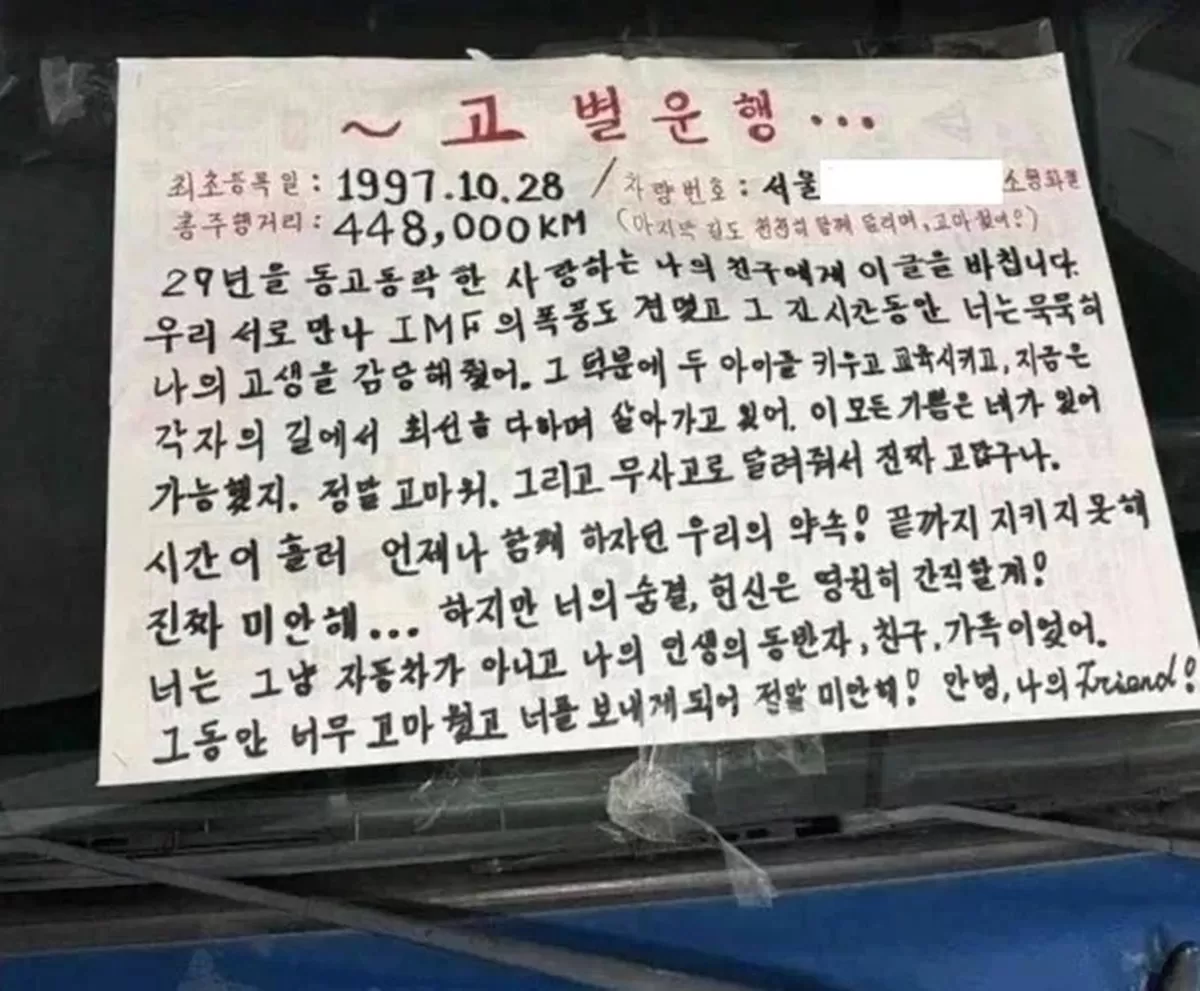 ~ 고별운행...
최초등록일 : 1997.10.28 / 차량번호 : 서울 소형화물
총주행거리 : 448,000KM (마지막 길도 천천히 함께 달리며, 고마웠어!)
29년을 동고동락한 사랑하는 나의 친구에게 이 글을 바칩니다.
우리 서로 만나 IMF의 폭풍도 견뎠고 그 긴 시간동안 너는 묵묵히
나의 고생을 감당해 줬어. 그 덕분에 두 아이를 키우고 교육시키고, 지금은
각자의 길에서 최선을 다하며 살아가고 있어. 이 모든 기쁨은 네가 있어
가능했지. 정말 고마워. 그리고 무사고로 달려줘서 진짜 고맙구나.
시간이 흘러 언제나 함께 하자던 우리의 약속! 끝까지 지키지 못해
진짜 미안해... 하지만 너의 숨결, 헌신은 영원히 간직할게!
너는 그냥 자동차가 아니고 나의 인생의 동반자, 친구, 가족이었어.
그동안 너무 고마웠고 너를 보내게 되어 정말 미안해! 안녕, 나의 Friend!